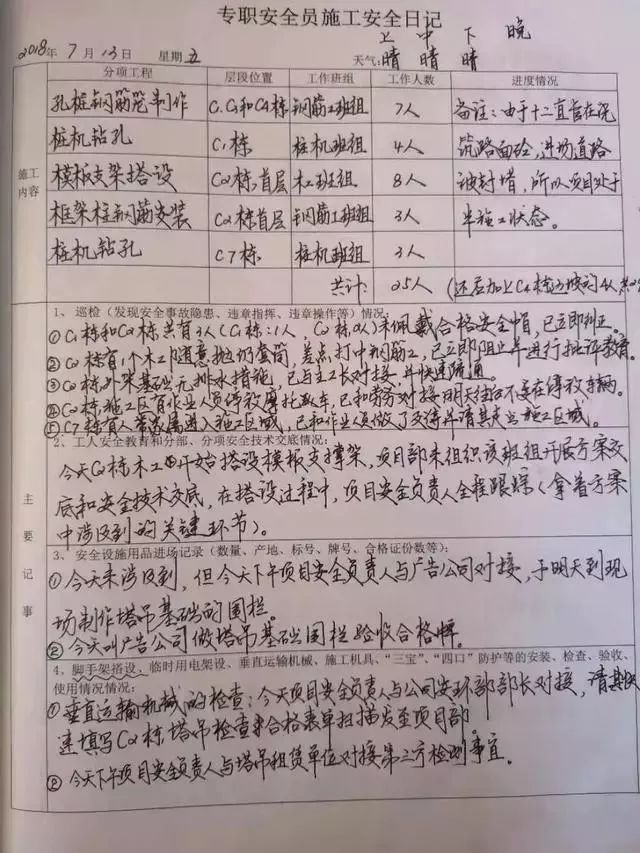 专职安全员施工安全日记
上 中 下 晚
2018年 7月13日 星期五 天气:晴 晴 晴
分项工程 层段位置 工作班组 工作人数 进度情况
施工内容
孔桩钢筋笼制作 C1和C4栋 钢筋工班组 7人 备注:由于十二直管在浇
桩机钻孔 C1栋 桩机班组 4人 筑路面砼,进场道路
模板支架搭设 C2栋首层 木工班组 8人 被封堵,所以项目处于
框架柱钢筋安装 C2栋首层 钢筋工班组 3人 半施工状态。
桩机钻孔 C7栋 桩机班组 3人
共计: 25人 (还应加上C4栋
主要记事
1、巡检(发现安全事故隐患、违章指挥、违章操作等)情况:
①C1栋和C2栋共有3人(C1栋:1人,C2栋2人)未佩戴合格安全帽,已立即纠正。
②C2栋有1个木工随意抛扔套筒,差点打中钢筋工,已立即阻止并进行批评教育。
③C2栋外架基础无排水措施,已与主工长对接,并快速疏通。
④C2栋施工区有作业人员停放摩托车,已和劳务对接明天往后不要在停放车辆。
⑤C7栋有人带家属进入施工区域,已和作业人员做了交涛并请其走出施工区域。
2、工人安全教育和分部、分项安全技术交底情况:
今天C2栋木工开始搭设模板支撑架,项目部未组织该班组开展方案交
底和安全技术交底,在搭设过程中,项目安全负责人全程跟踪(拿着方案
中涉及到的关键环节)。
3、安全设施用品进场记录(数量、产地、标号、牌号、合格证份数等):
①今天未涉及到,但今天下午项目安全负责人与广告公司对接,于明天到现
场制作塔吊基础的围栏。
②今天叫广告公司做塔吊基础围栏验收合格牌。
4、脚手架搭设、临时用电架设、垂直运输机械、施工机具、“三宝”、“四口”防护等的安装、检查、验收、
使用情况情况:
①垂直运输机械的检查:今天项目安全负责人与公司安环部部长对接,请其快
速填写C2栋塔吊检查合格表单扫描发至项目部。
②今天下午项目安全负责人与塔吊租赁单位对接第三方检测事宜。